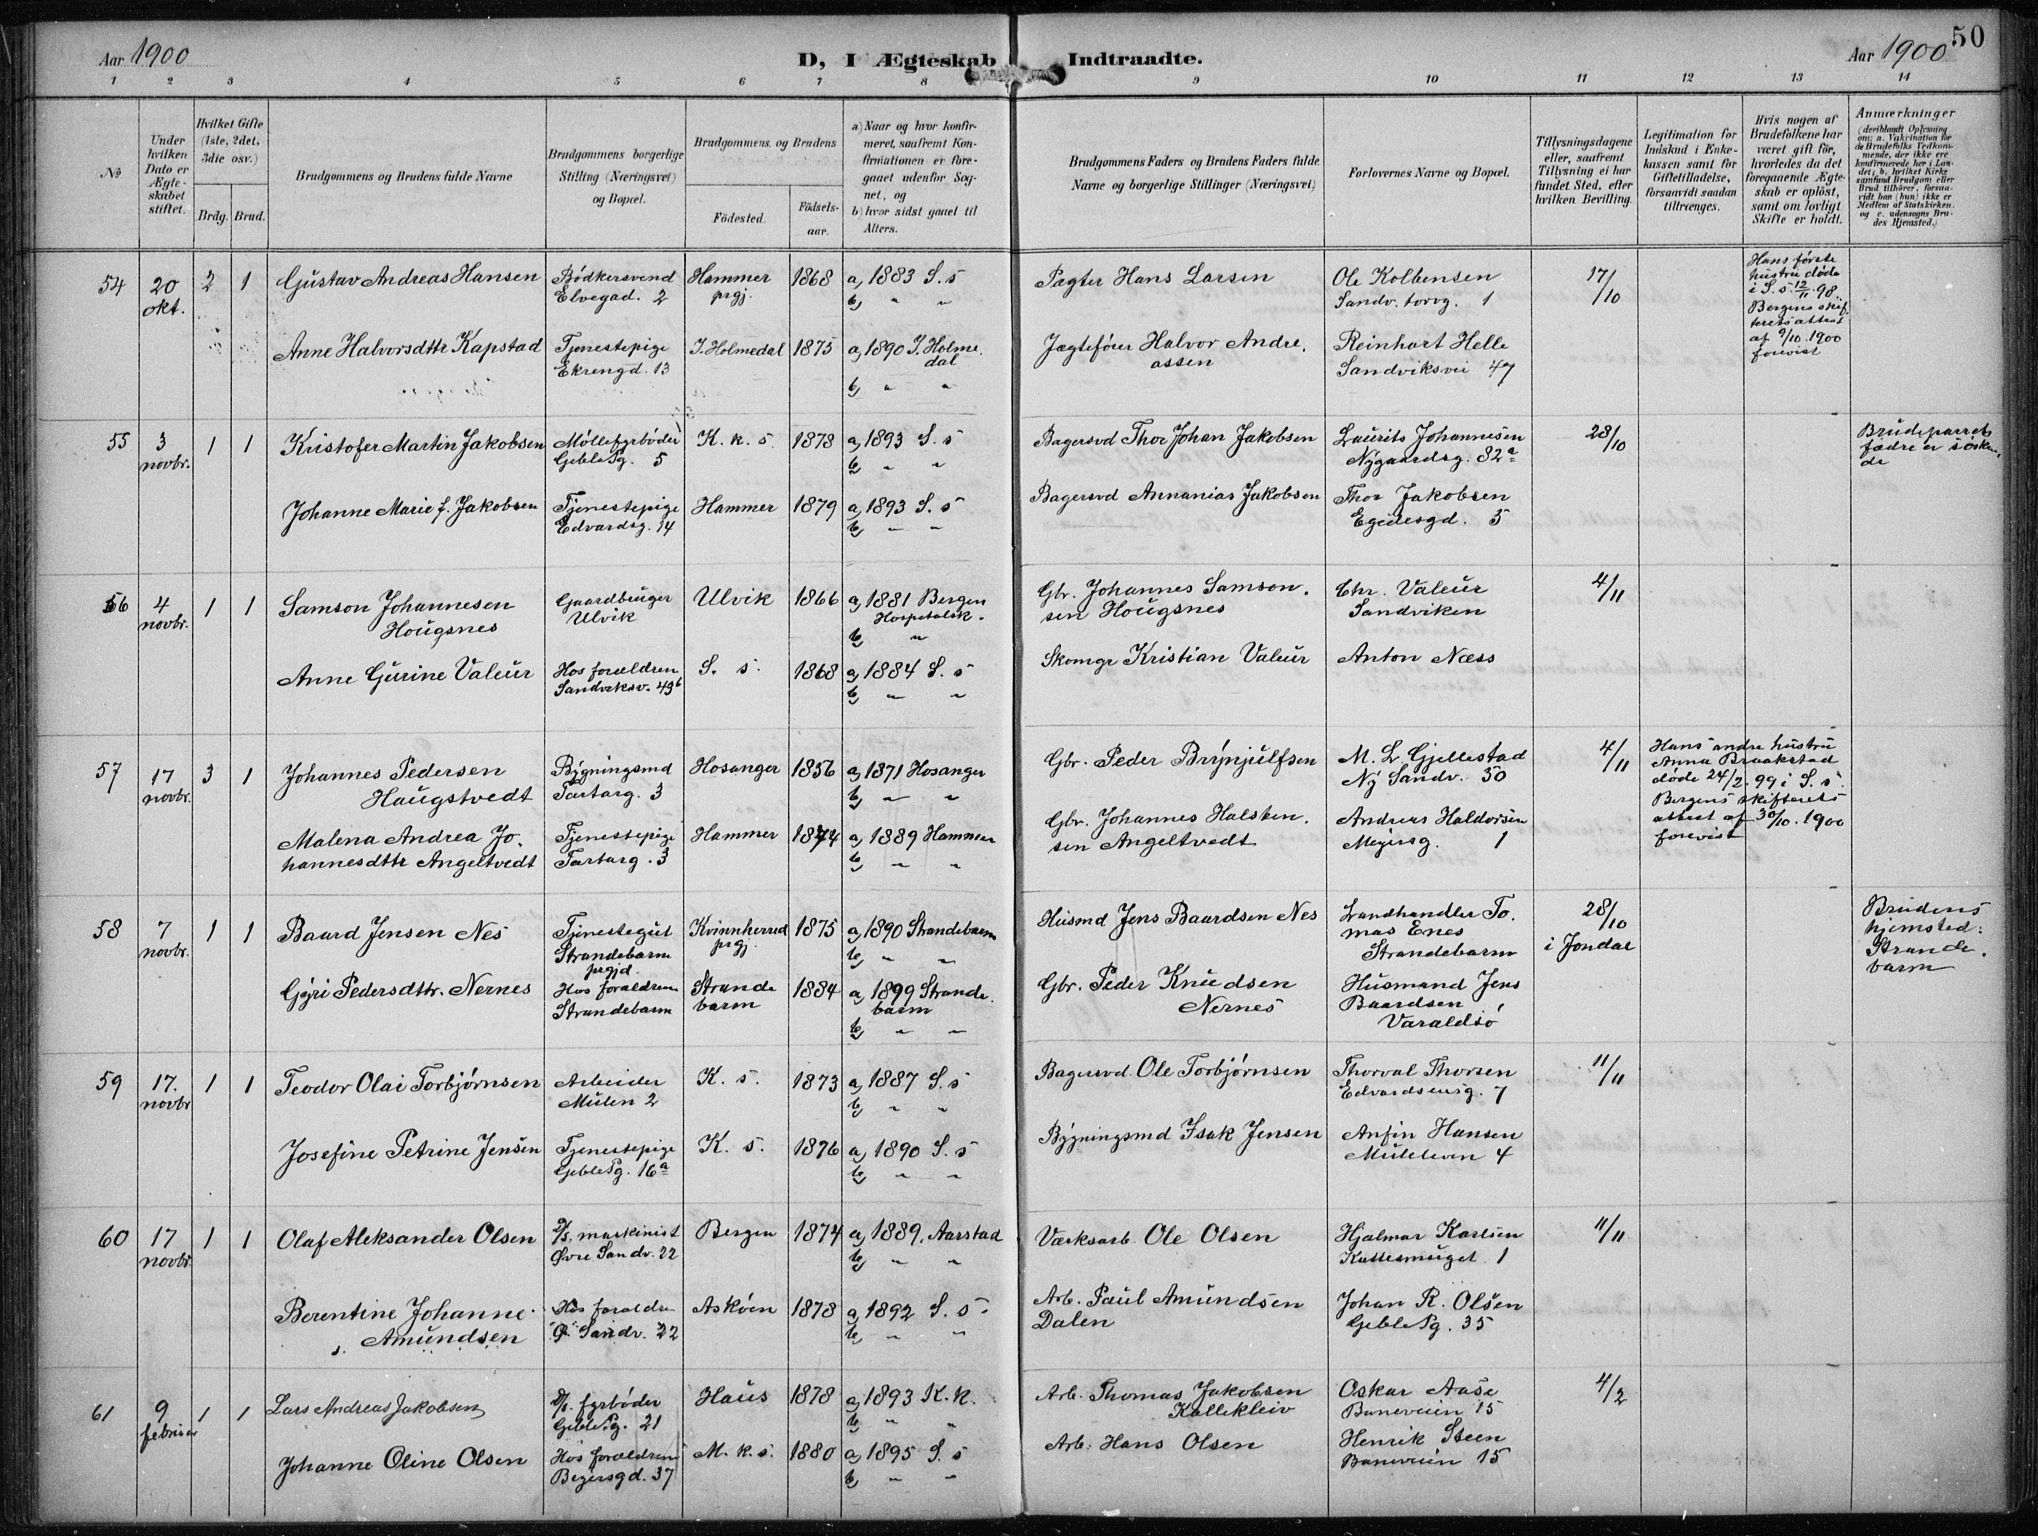 50
Aar 1900
D, I Ægteskab Indtraadte.
Aar 1900
1 2 3 4 5 6 7 8 9 10 11 12 13 14
No
Under hvilken Dato er Ægteskabet stiftet.
Hvilket Gifte (1ste, 2det, 3die osv.)
Brdg. Brud.
Brudgommens og Brudens fulde Navne
Brudgommens borgerlige Stilling (Næringsvei) og Bopæl.
Brudgommens og Brudens
Födested.
Födselsaar.
a) Naar og hvor konfirmeret, saafremt Konfirmationen er foregaaet udenfor Sognet, og
b) hvor sidst gaaet til Alters.
Brudgommens Faders og Brudens Faders fulde Navne og borgerlige Stillinger (Næringsvei)
Forlovernes Navne og Bopæl.
Tillysningsdagene eller, saafremt Tillysning ei har fundet Sted, efter hvilken Bevilling.
Legitimation for Indskud i Enkekassen samt for Giftetilladelse, forsaavidt saadan tiltrænges.
Hvis nogen af Brudefolkene har været gift för, hvorledes da det foregaaende Ægteskab er oplöst, samt om lovligt Skifte er holdt.
Anmærkninger
(deriblandt Oplysning om: a. Vakcination for de Brudefolks Vedkommende, der ikke ere konfirmerede her i Landet; b. hvilket Kirkesamfund Brudgom eller Brud tilhörer, forsaavidt han (hun) ikke er Medlem af Statskirken, og c. udensogns Brudes Hjemsted.)
54 20 okt. 2 1 Gustav Andreas Hansen Bødkersvend Elvegad. 2 Hammer prgj. 1868 a, 1883 S. s b, " " Pagter Hans Larsen Ole Kolbensen Sandv. torvg. 1 17/10 Hans første hustru døde i S. s 12/11 98. Bergens skifterets attest af 9/10. 1900 forevist
Anne Halvorsdttr Kapstad Tjenestepige Ekrengd. 13 I. Holmedal 1875 a, 1890 I. Holmedal b, " " Jægtefører Halvor Andreassen Reinhart Helle Sandviksvei 47
55 3 novbr. 1 1 Kristofer Martin Jakobsen Møllefyrbøder Geble Pg. 5 K. k. s. 1878 a, 1893 S. s b, " " Bagersvd Thor Johan Jakobsen Laurits Johannesen Nygaardsg. 82a 28/10 Brudeparrets fædre er søskende
Johanne Marie f. Jakobsen Tjenestepige Edvardsg. 14 Hammer 1879 a, 1893 S. s b, " " Bagersvd Annanias Jakobsen Thor Jakobsen Egidesgd. 5
56 4 novbr. 1 1 Samson Johannesen Hougsnes Gaardbruger Ulvik Ulvik 1866 a, 1881 Bergen Hospetalsk. b, " Gbr. Johannes Samsonsen Hougsnes Chr. Valeur Sandviken 4/11
Anne Gurine Valeur Hos forældren Sandviksv. 49b S. s. 1868 a, 1884 S. s b, " " Skomgr Kristian Valeur Anton Næss
57 17 novbr. 3 1 Johannes Pedersen Haugstvedt Bygningsmd Tartarg. 3 Hosanger 1856 a, 1871 Hosanger b, " " Gbr. Peder Brynjulfsen M. L. Gjellestad Ny Sandv. 30 4/11 Hans andre hustru Anna Braakstad døde 24/2. 99 i S. s. Bergens skifterets attest af 30/10. 1900 forevist
Malena Andrea Johannesdttr Angeltvedt Tjenestepige Tartarg. 3 Hammer 1874 a, 1889 Hammer b, " " Gbr. Johannes Halstensen Angeltvedt Andreas Haldorsen Meyersg. 1
58 7 novbr. 1 1 Baard Jensen Nes Tjenestegut Strandebarm prgjd. Kvinnherred prgj. 1875 a, 1890 Strandebarm b, " " Husmd Jens Baardsen Nes Landhandler Tomas Enes Strandebarm 28/10 i Jondal Brudens hjemsted: Strandebarm
Gyri Pedersdttr. Nernes Hos foraldren Strandebarm Strandebarm 1884 a, 1899 Strandebarm b, " " Gbr. Peder Knudsen Nernes Husmand Jens Baardsen Varaldsö
59 17. novbr 1 1 Teodor Olai Torbjørnsen Arbeider Mulen 2 K. s. 1873 a, 1887 S. s b, " " Bagersvd. Ole Torbjørnsen Thorval Thorsen Edvardsensg. 7 11/11
Josefine Petrine Jensen Tjenestepige Geble Pg. 16a K. s. 1876 a, 1890 S. s b, " " Bygningsmd Isak Jensen Anfin Hansen Mulelven 4
60 17 novbr. 1 1 Olaf Aleksander Olsen D/s. maskinist Øvre Sandv. 22 Bergen 1874 a, 1889. Aarstad b, " " Værksarb. Ole Olsen Hjalmar Karlsen Kattesmuget 1 11/11
Berentine Johanne Amundsen Hos foraldre Ø. Sandv. 22 Askøen 1878 a, 1892 S. s. b, " " Arb. Paul Amundsen Dalen Johan R. Olsen Geble Pg. 35
61 9 februar 1 1 Lars Andreas Jakobsen D/s. fyrbøder Geble Pg. 21 Haus 1878 a, 1893 K. k. b, " " Arb. Thomas Jakobsen Kallekleiv Oskar Aase Baneveien 15 4/2
Johanne Oline Olsen Hos forældrene Beyersgd. 37 M. k. s. 1880 a, 1895 S. s b, " " Arb. Hans Olsen Henrik Steen Baneveien 15